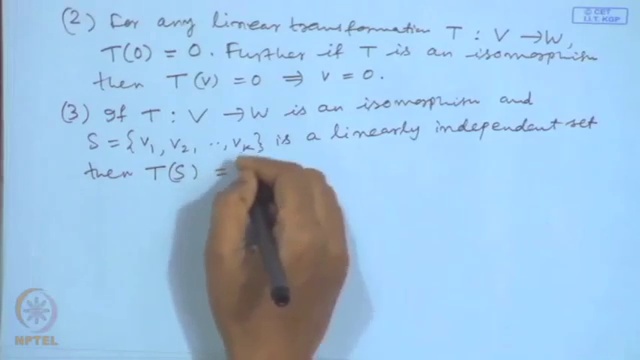 © CET
I.I.T. KGP
(2) For any linear transformation T : V → W,
T(0) = 0. Further if T is an isomorphism
then T(v) = 0 ⟹ v = 0.
(3) If T : V → W is an isomorphism and
S = {v₁, v₂, .., vₖ} is a linearly independent set
then T(S) =
NPTEL